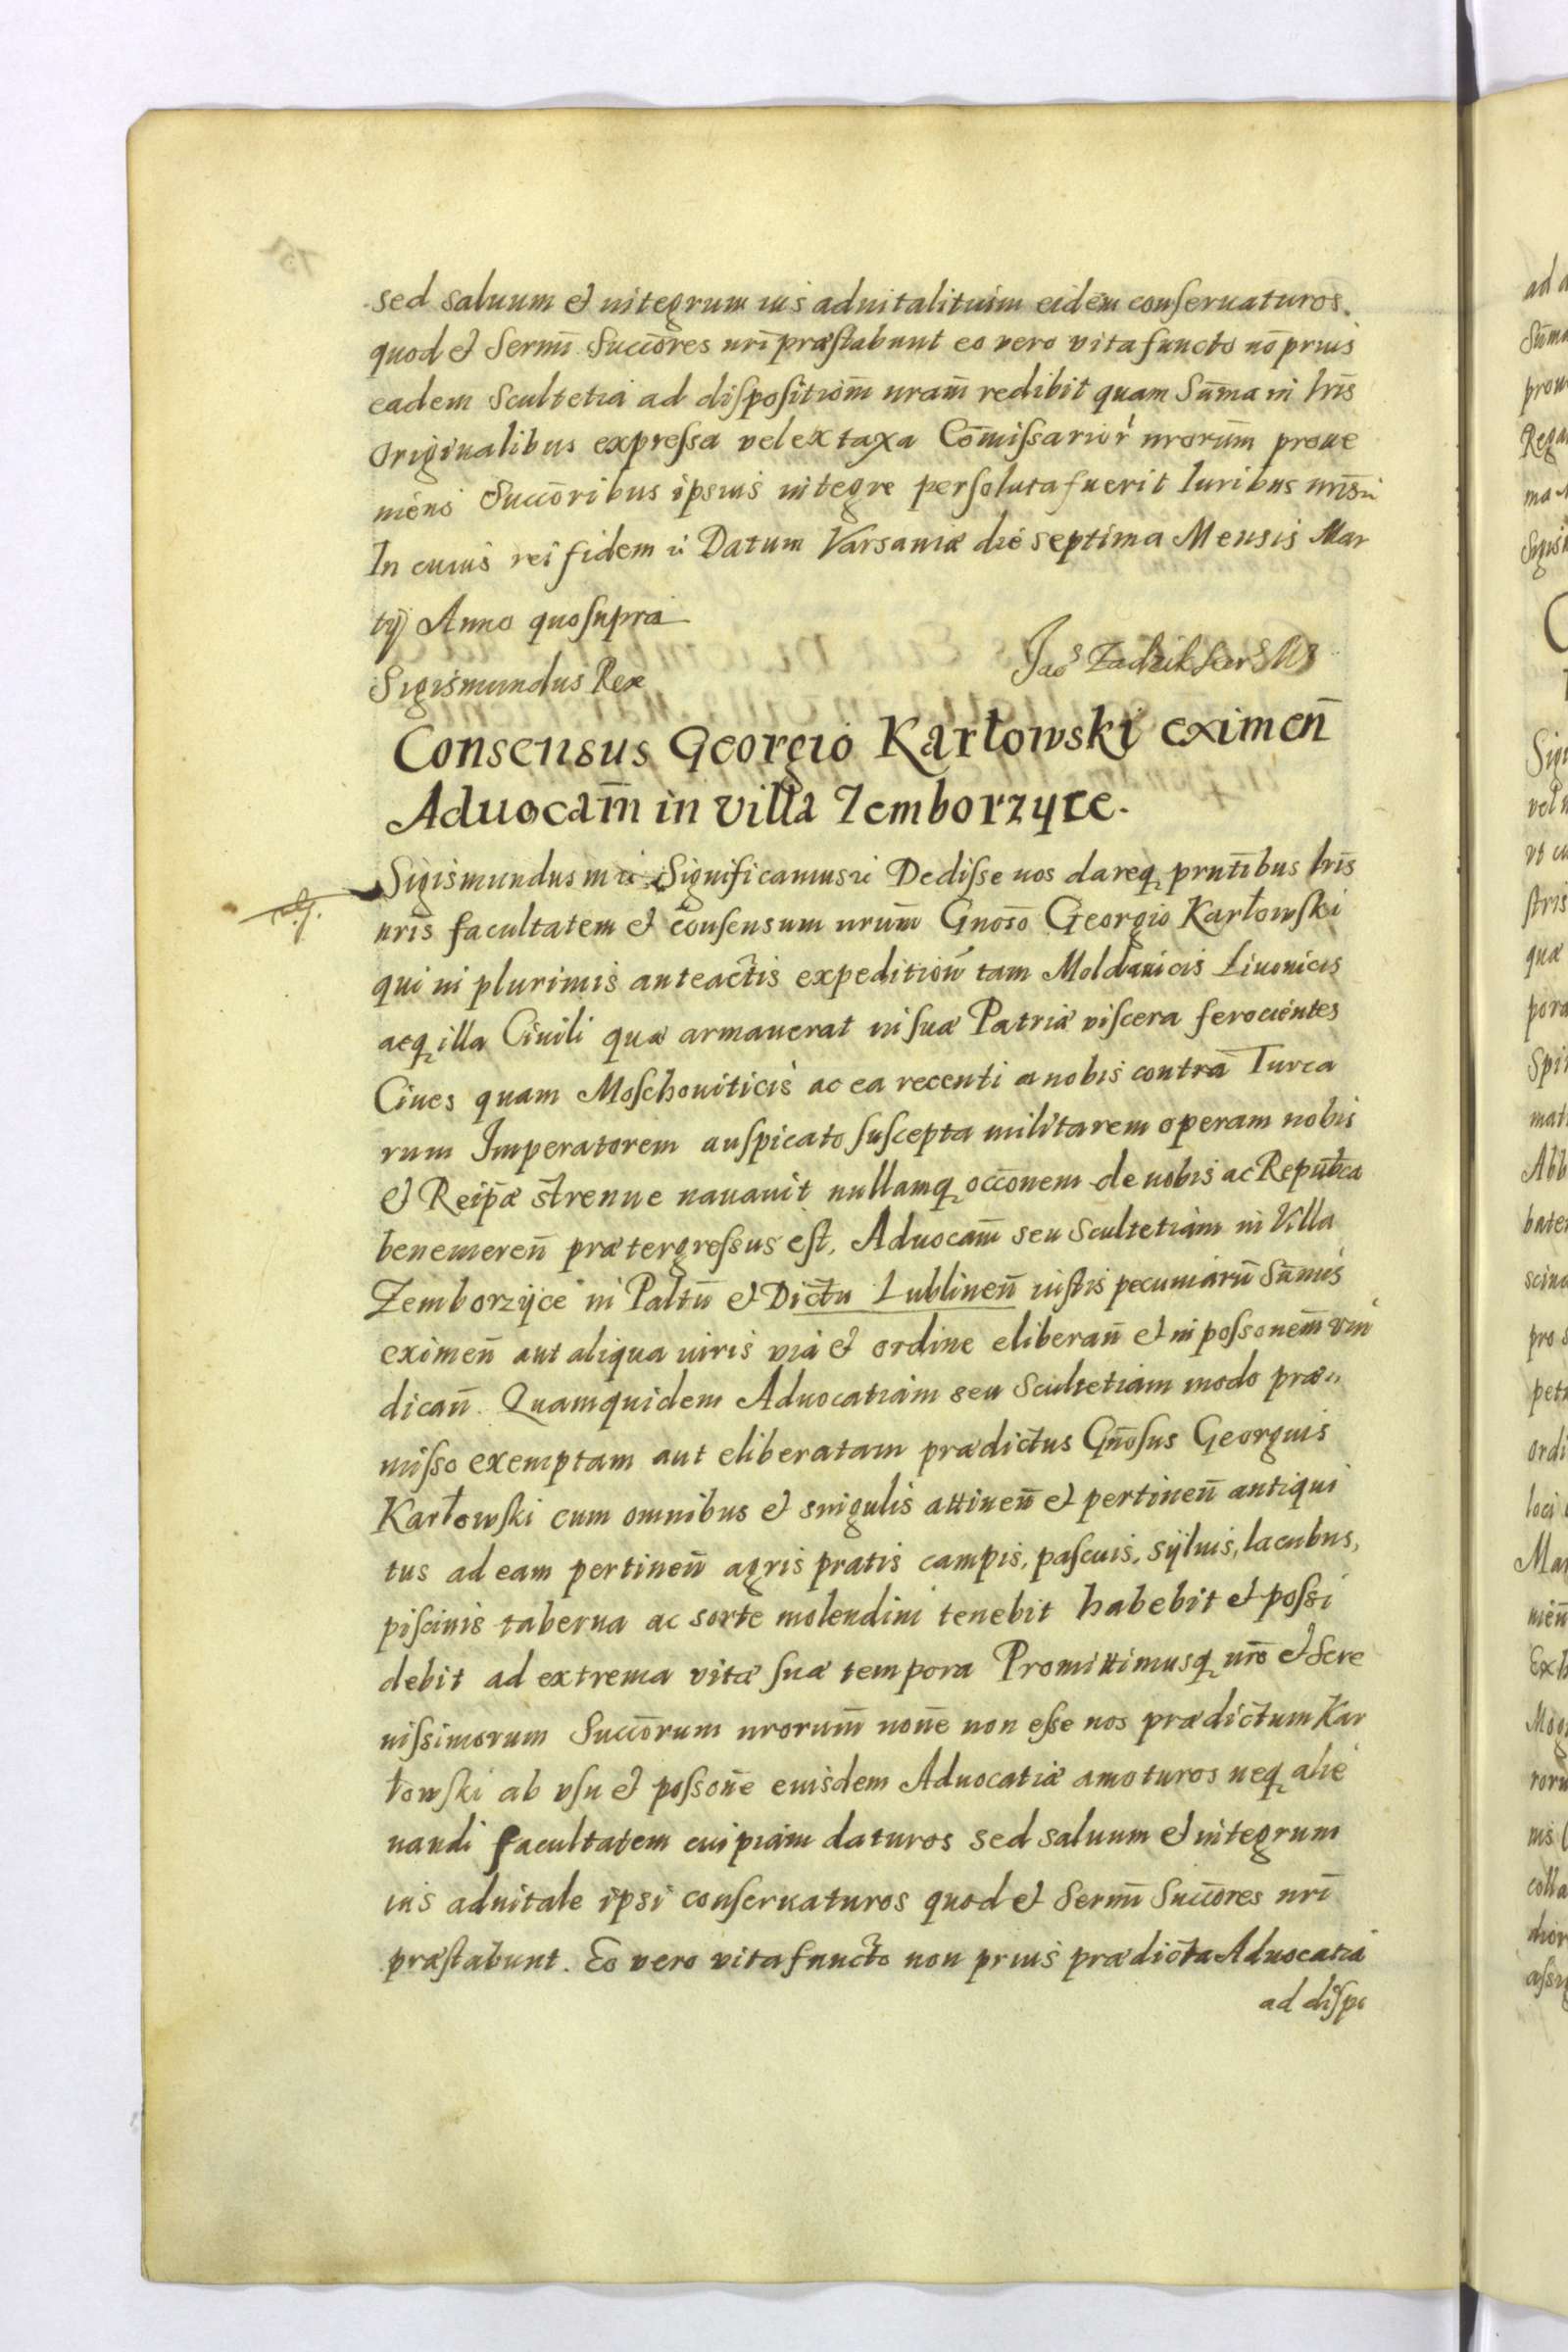 sed saluum et integrum ius aduitalitium eidem conseruaturos.
quod et Sermi Succores nri præstabunt eo vero vita functo no prius
eadem Scultetia ad dispositiom nram redibit quam Suma in lris
Originalibus expressa vel ex taxa Comissarior nrorum proue
niens Succoribus ipsius integre persoluta fuerit Iuribus nris
In cuius rei fidem Datum Varsauiæ die septima Mensis Mar
tij Anno quo supra
Sigismundus Rex
Jacs Zadzik Secr
Consensus Georgio Karłowski eximen
Aduocam in villa Zemborzyce.
Sigismundus III Significamus Dedisse nos dareq prntibus lris
nris facultatem et consensum nrum Gnoso Georgio Karłowski
qui in plurimis anteactis expedition tam Moldauicis Liuonicis
aeq illa Ciuili quæ armauerat in suæ Patriæ viscera ferocientes
Ciues quam Moschouiticis ac ea recenti a nobis contra Turca
rum Imperatorem auspicato suscepta militarem operam nobis
et Reipæ strenue nauauit nullamq occonem de nobis ac Republca
benemeren prætergressus est, Aduocam seu Scultetiam in Villa
Zemborzyce in Paltu et Dictu Lublinen iustis pecuniaru Sumis
eximen aut aliqua iuris via et ordine eliberan et in possonem vin
dican. Quamquidem Aduocatiam seu Scultetiam modo præ,,
misso exemptam aut eliberatam prædictus Gnosus Georgius
Karłowski cum omnibus et singulis attinen et pertinen antiqui
tus ad eam pertinen agris pratis campis, pascuis, syluis, lacubus,
piscinis taberna ac sorte molendini tenebit habebit et possi
debit ad extrema vitæ suæ tempora Promittimusq nro et Sere
nissimorum Succorum nrorum none non esse nos prædictum Kar
łowski ab vsu et possone eiusdem Aduocatiæ amoturos neq alie
nandi facultatem cuipiam daturos sed saluum et integrum
ius aduitale ipsi conseruaturos quod et Sermi Succores nri
præstabunt. Eo vero vita functo non prius prædicta Aduocatia
ad dispo